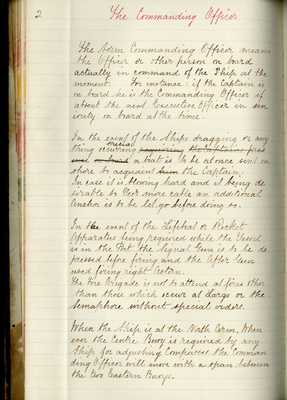 2
The Commanding Officer
The term Commanding Officer means
the Officer or other person on board
actually in command of the Ship at the
moment. For instance: if the Captain is
on board he is the Commanding Officer if
absent the next Executive Officer in sen
iority on board at the time.
In the event of the Ships dragging or any
thing special
occurring
a boat is to be at once sent on
shore to acquaint the Captain.
In case it is blowing hard and it being de
sirable to Veer more cable an additional
Anchor is to be let go before doing so.
In the event of the Lifeboat or Rocket
Apparatus being required while the Vessel
is in the Port the Signal Gun is to be de
pressed before firing and the After Gun
used firing right astern.
The Fire Brigade is not to attend at fires other
than those which occur at or the
Semaphore without special orders.
When the Ship is at the North Arm, When
ever the Centre Buoy is required by any
Ship for adjusting Compasses the Comman
ding Officer will moor with a span between
the two Eastern Buoys.